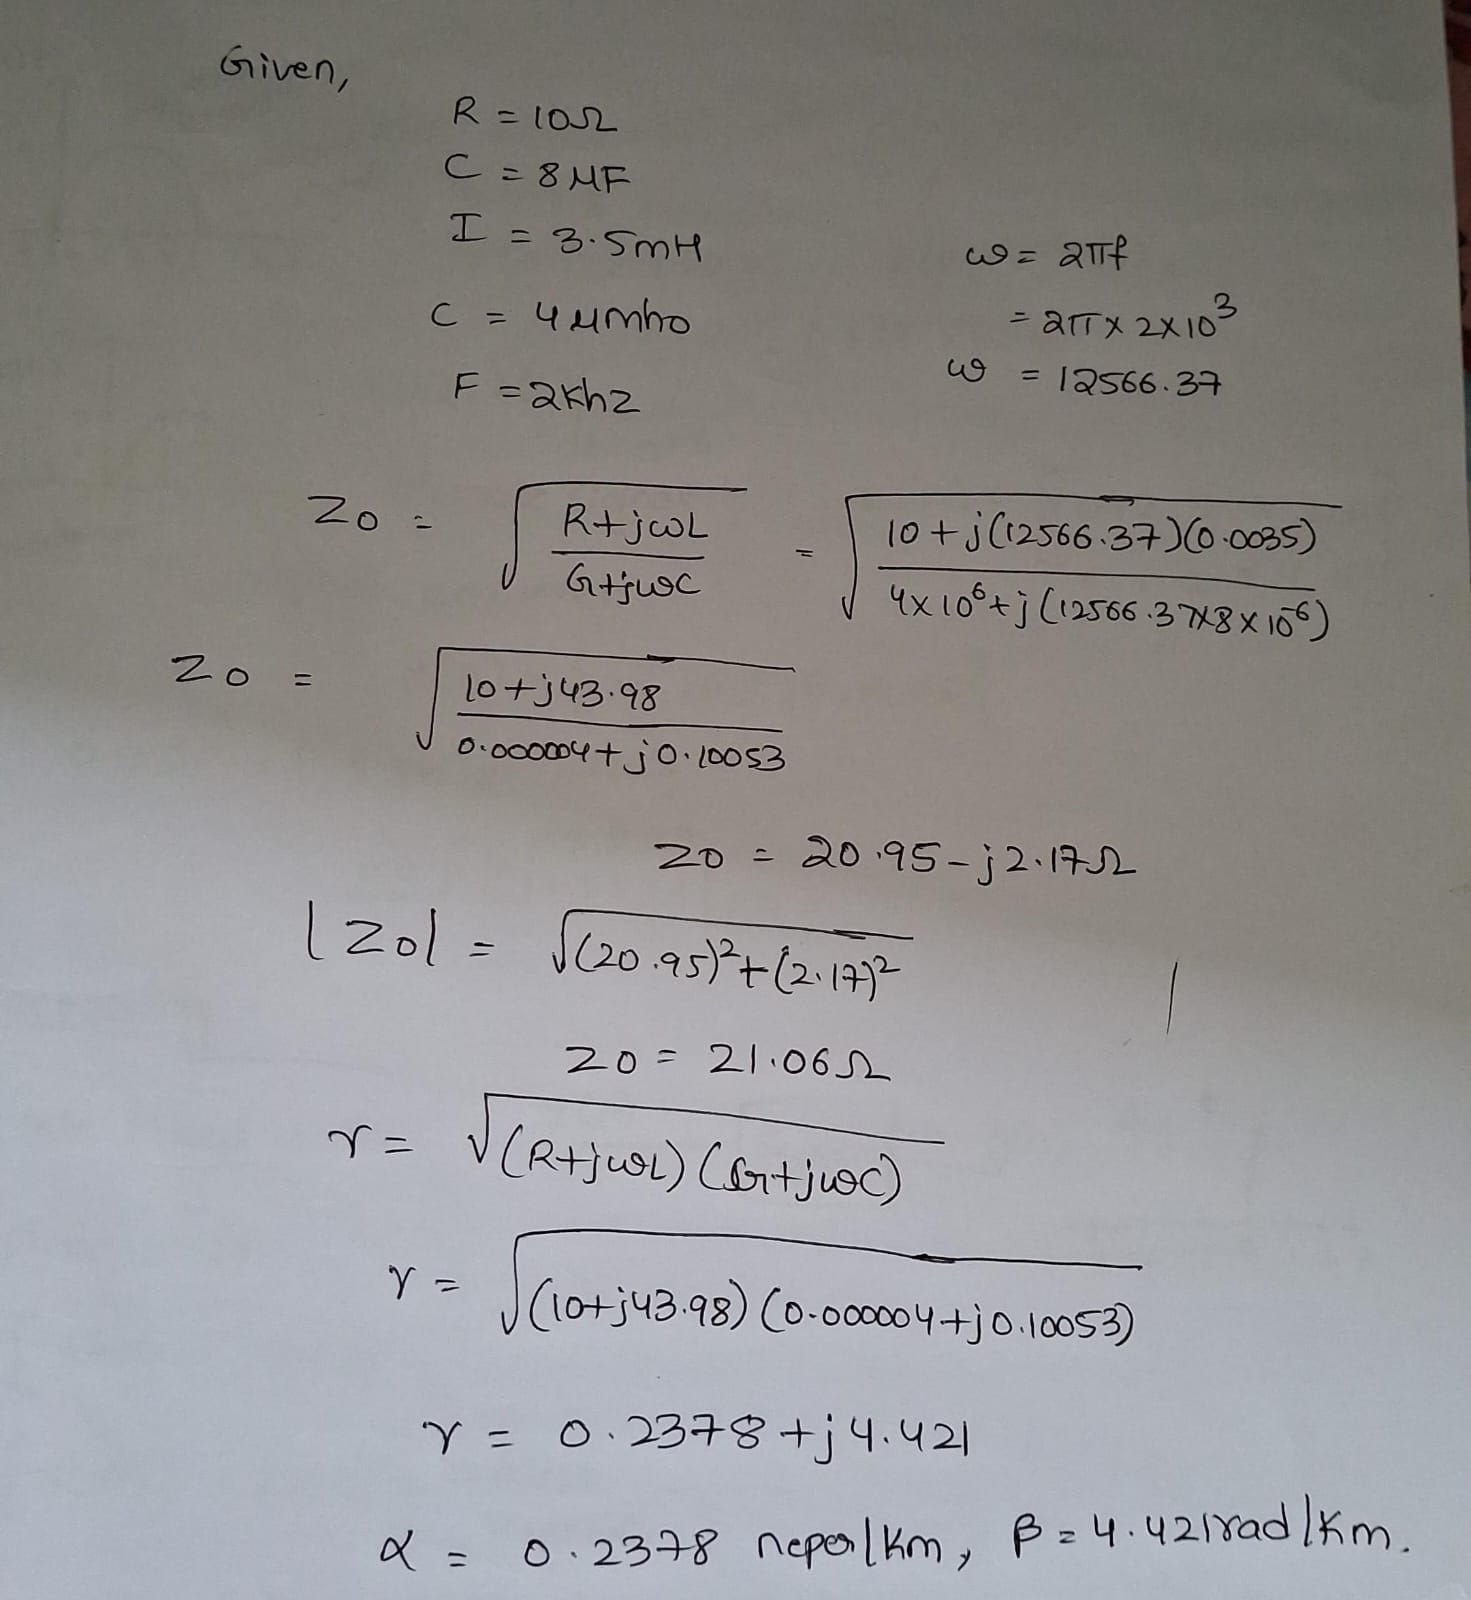 Given,
R = 10Ω
C = 8 μF
I = 3.5mH
C = 4 μmho
F = 2Khz
ω = 2πf
= 2π x 2x10³
ω = 12566.37
Zo = √(R+jωL / G+jωC) = √(10 + j(12566.37)(0.0035) / 4x10⁶ + j(12566.37x8x10⁻⁶))
Zo = √(10+j43.98 / 0.000004+j0.10053)
Zo = 20.95-j2.17Ω
|Zo| = √(20.95)²+(2.17)²
Zo = 21.06Ω
γ = √(R+jωL)(G+jωC)
γ = √(10+j43.98)(0.000004+j0.10053)
γ = 0.2378+j4.421
α = 0.2378 neper/km, β = 4.421rad/km.